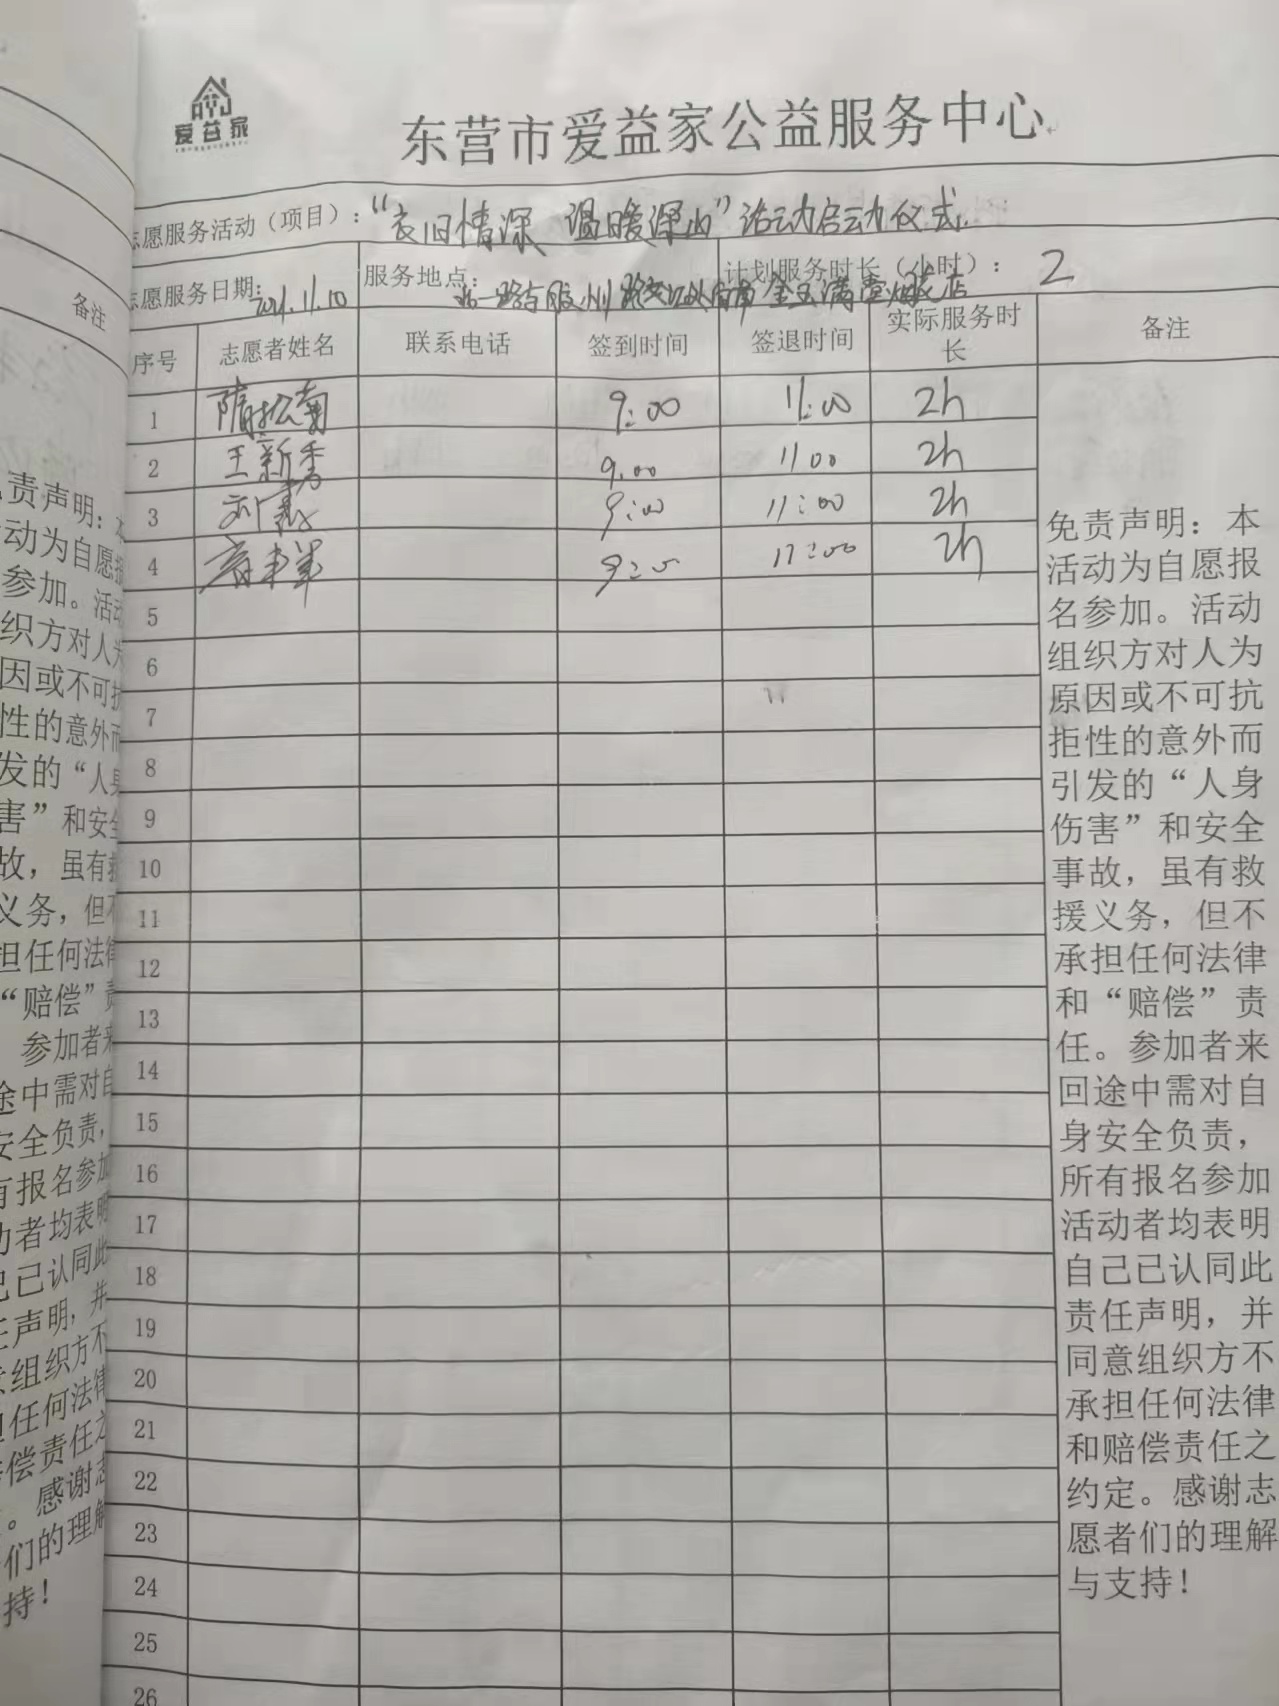 爱益家
东营市爱益家公益服务中心
志愿服务活动（项目）：“衣旧情深 温暖深山”活动启动仪式
志愿服务日期：2021.11.10 服务地点：北一路与胶州路 金玉满堂 店 计划服务时长（小时）：2
序号 志愿者姓名 联系电话 签到时间 签退时间 实际服务时长 备注
1 隋松菊 9:00 11:00 2h
2 王新秀 9.00 11 00 2h
3 9:00 11:00 2h
4 11:00 2h
5
6
7
8
9
10
11
12
13
14
15
16
17
18
19
20
21
22
23
24
25
26
免责声明：本
活动为自愿报
名参加。活动
组织方对人为
原因或不可抗
拒性的意外而
引发的“人身
伤害”和安全
事故，虽有救
援义务，但不
承担任何法律
和“赔偿”责
任。参加者来
回途中需对自
身安全负责，
所有报名参加
活动者均表明
自己已认同此
责任声明，并
同意组织方不
承担任何法律
和赔偿责任之
约定。感谢志
愿者们的理解
与支持！
备注
责声明：
动为自愿
参加。活动
组织方对人为
因或不可抗
性的意外而
发的“人身
害”和安全
故，虽有救
义务，但不
担任何法律
“赔偿”责
参加者来
途中需对自
安全负责，
有报名参加
动者均表明
己已认同此
任声明，并
意组织方不
担任何法律
偿责任之
。感谢志
们的理解
持！